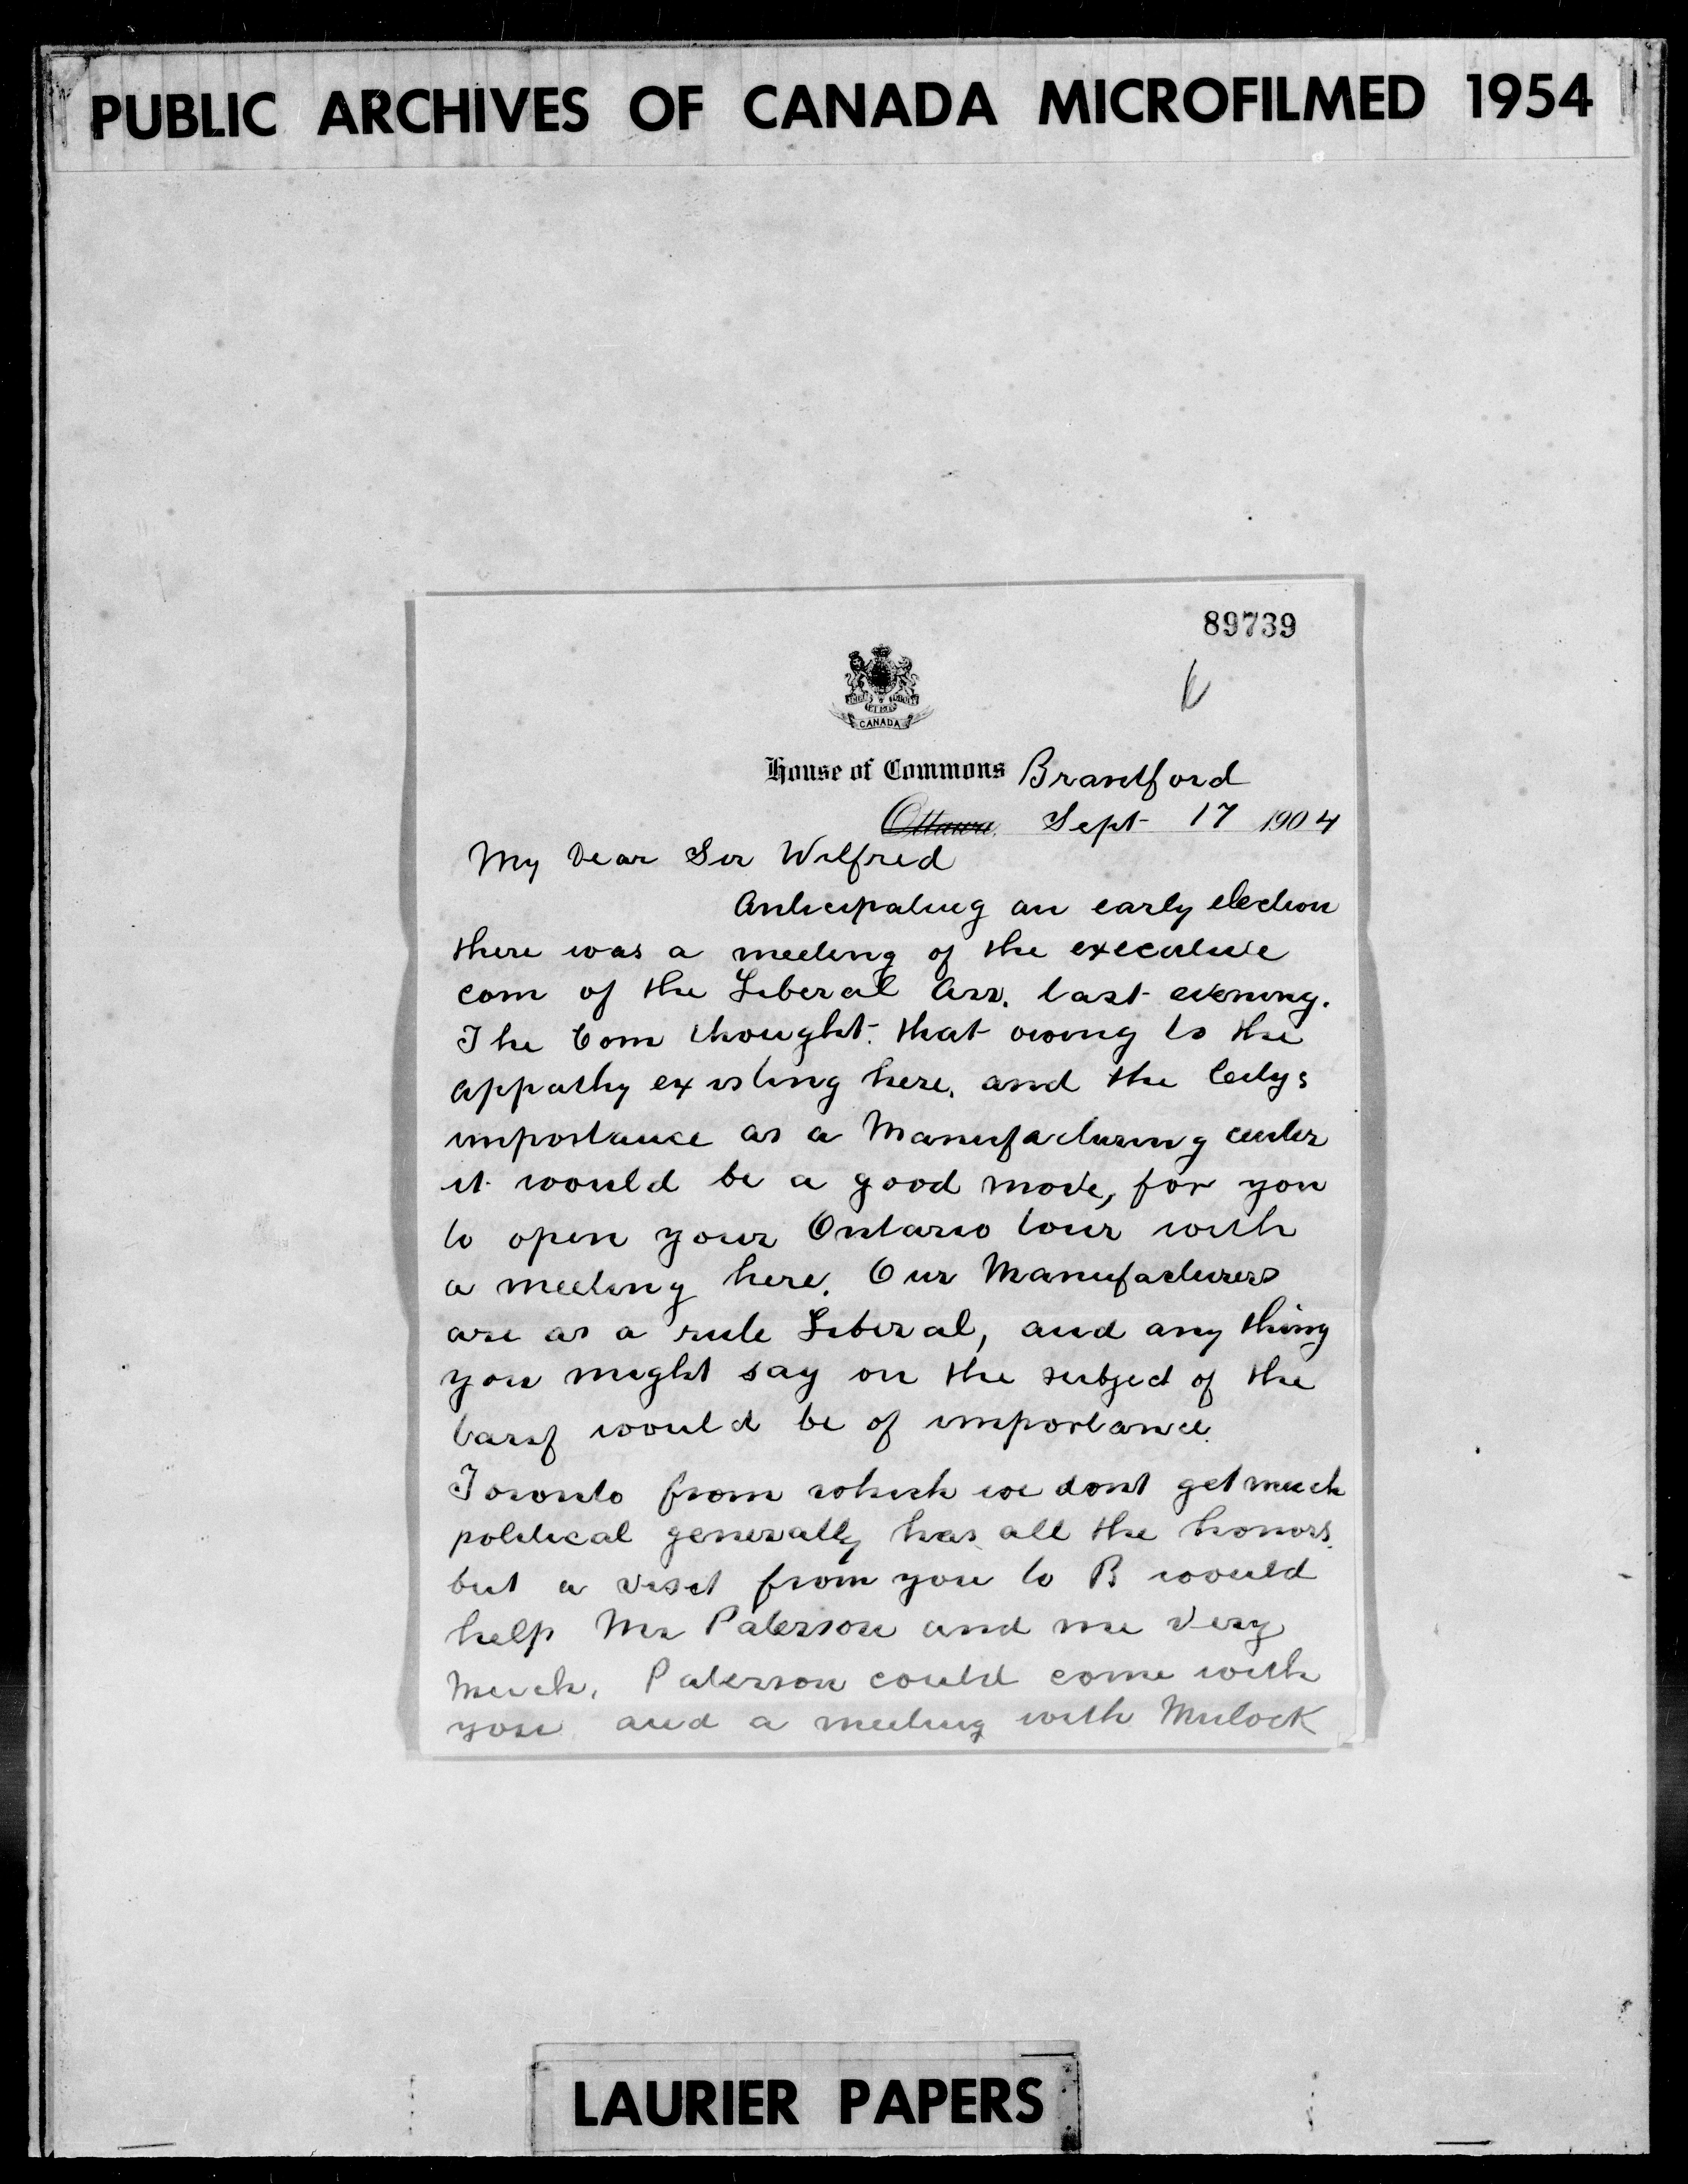 PUBLIC ARCHIVES OF CANADA MICROFILMED 1954
89739
CANADA
House of Commons Brantford
Ottawa, Sept 17 1904
My Dear Sir Wilfred
Anticipating an early election
there was a meeting of the executive
com of the Liberal Ass. last evening.
The Com thought that owing to the
appathy existing here, and the Citys
importance as a Manufacturing center
it would be a good move, for you
to open your Ontario tour with
a meeting here. Our Manufacturers
are as a rule Liberal, and any thing
you might say on the subject of the
tarif would be of importance.
Toronto from which we dont get much
political generally has all the honors.
but a visit from you to B would
help Mr Paterson and me very
much. Paterson could come with
you and a meeting with Mulock
LAURIER PAPERS